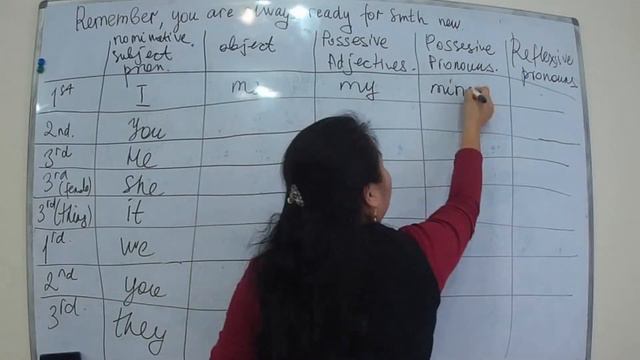 Remember, you are always ready for smth new
nominative subject pron. object Possesive Adjectives. Possesive Pronouns. Reflexsive pronouns
1st I me my min
2nd. you
3rd He
3rd (female) she
3rd (thing) it
1rd. we
2nd you
3rd. they